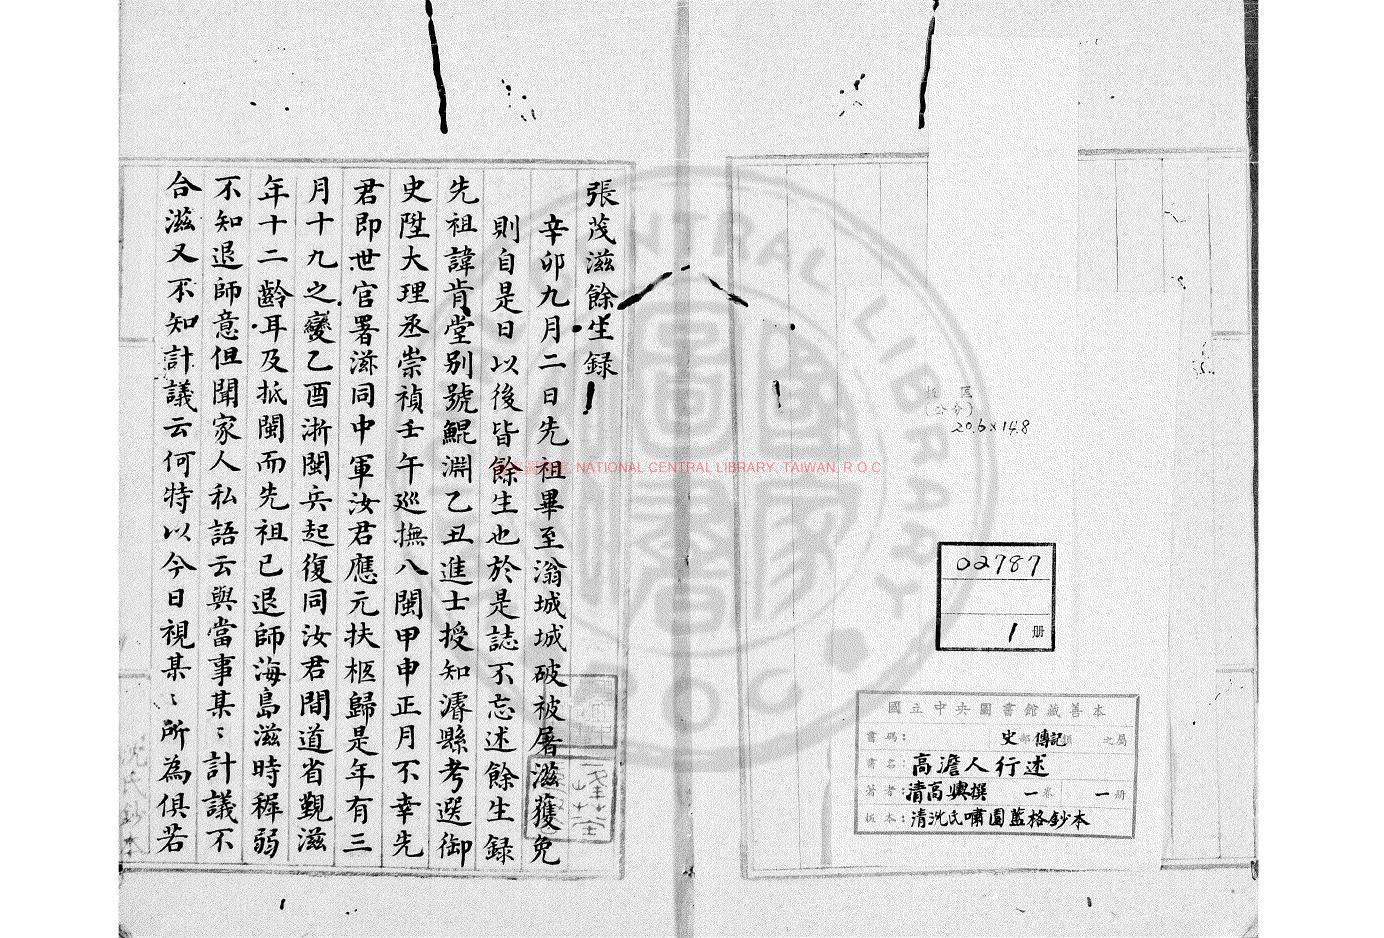 張茂滋餘生錄
辛卯九月二日先祖畢至滃城城破被屠滋獲免
則自是日以後皆餘生也於是誌不忘述餘生錄
先祖諱肯堂别號鯤淵乙丑進士授知濬縣考選御
史陞大理丞崇禎壬午巡撫八閩甲申正月不幸先
君即世官署滋同中軍汝君應元扶柩歸是年有三
月十九之變乙酉浙閩兵起復同汝君間道省覲滋
年十二齡耳及抵閩而先祖已退師海島滋時穉弱
不知退師意但聞家人私語云與當事某〻計議不
合滋又不知計議云何特以今日視某〻所為俱若
沈氏鈔本
NATIONAL CENTRAL LIBRARY, TAIWAN, R.O.C
CENTRAL LIBRARY
國家圖書
公分)
20.6×14.8
02787
1 册
國立中央圖書館藏善本
書碼： 史部傳記類 之屬
書名：高澹人行述
著者：清高輿撰 一卷 一册
板本：清沈氏嘯園藍格鈔本